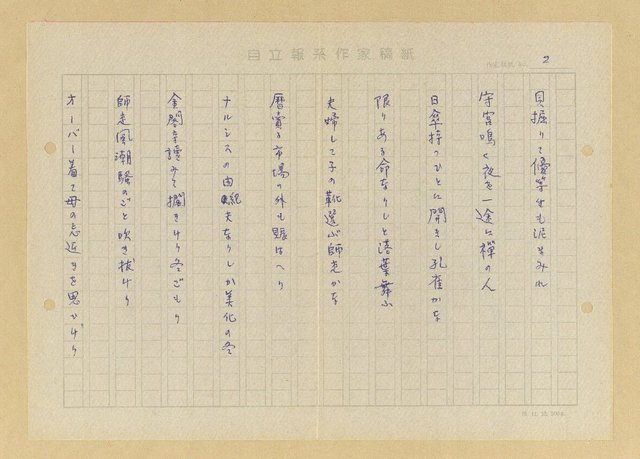 自立報系作家稿紙
2
貝掘りて優等生も泥まみれ
守宮鳴く夜を一途に禅の人
日傘持つひとに開きし孔雀かな
限りある命なりしと落葉舞ふ
夫婦して子の靴選ぶ師走かな
暦賣る市場の外も賑はへり
ナルシスの由縁夫なりしか美化の冬
金閣寺讀みて擱きけり冬ごもり
師走風潮騒のごと吹き抜けり
オーバー着て母の忌近きを思ひけり